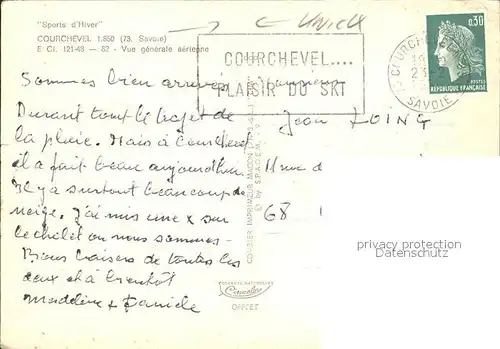 "Sports d'Hiver"
COURCHEVEL 1.850 (73. Savoie)
E Cl. 121-48 — 82 - Vue générale aérienne
COURCHEVEL....
PLAISIR DU SKI
0,30
POSTES
RÉPUBLIQUE FRANÇAISE
COURCHE
SAVOIE
Sommes bien arrivés
Durant tout le trajet de
la pluie. Mais à Courchevel
il a fait beau aujourd'hui.
Il y a surtout beaucoup de
neige. J'ai mis une x sur
le chalet où nous sommes -
Bons baisers de toutes les
deux et à bientôt
Madeleine & Danièle
Monsieur
Jean
rue d
68
COMBIER IMPRIMEUR MACON
© by S.P.A.D.E.M.
OFFSET
privacy protection
Datenschutz